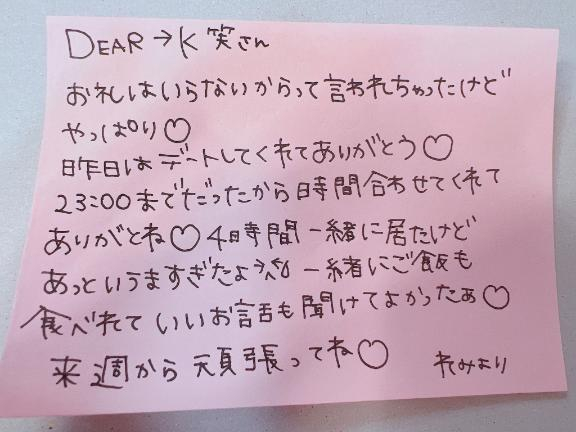 DEAR→K 笑さん
お礼はいらないからって言われちゃったけど
やっぱり♡
昨日はデートしてくれてありがとう♡
23:00までだったから時間合わせてくれて
ありがとね♡ 4時間一緒に居たけど
あっというますぎたよう 一緒にご飯も
食べれていいお話も聞けてよかったぁ♡
来週から頑張ってね♡ れみより